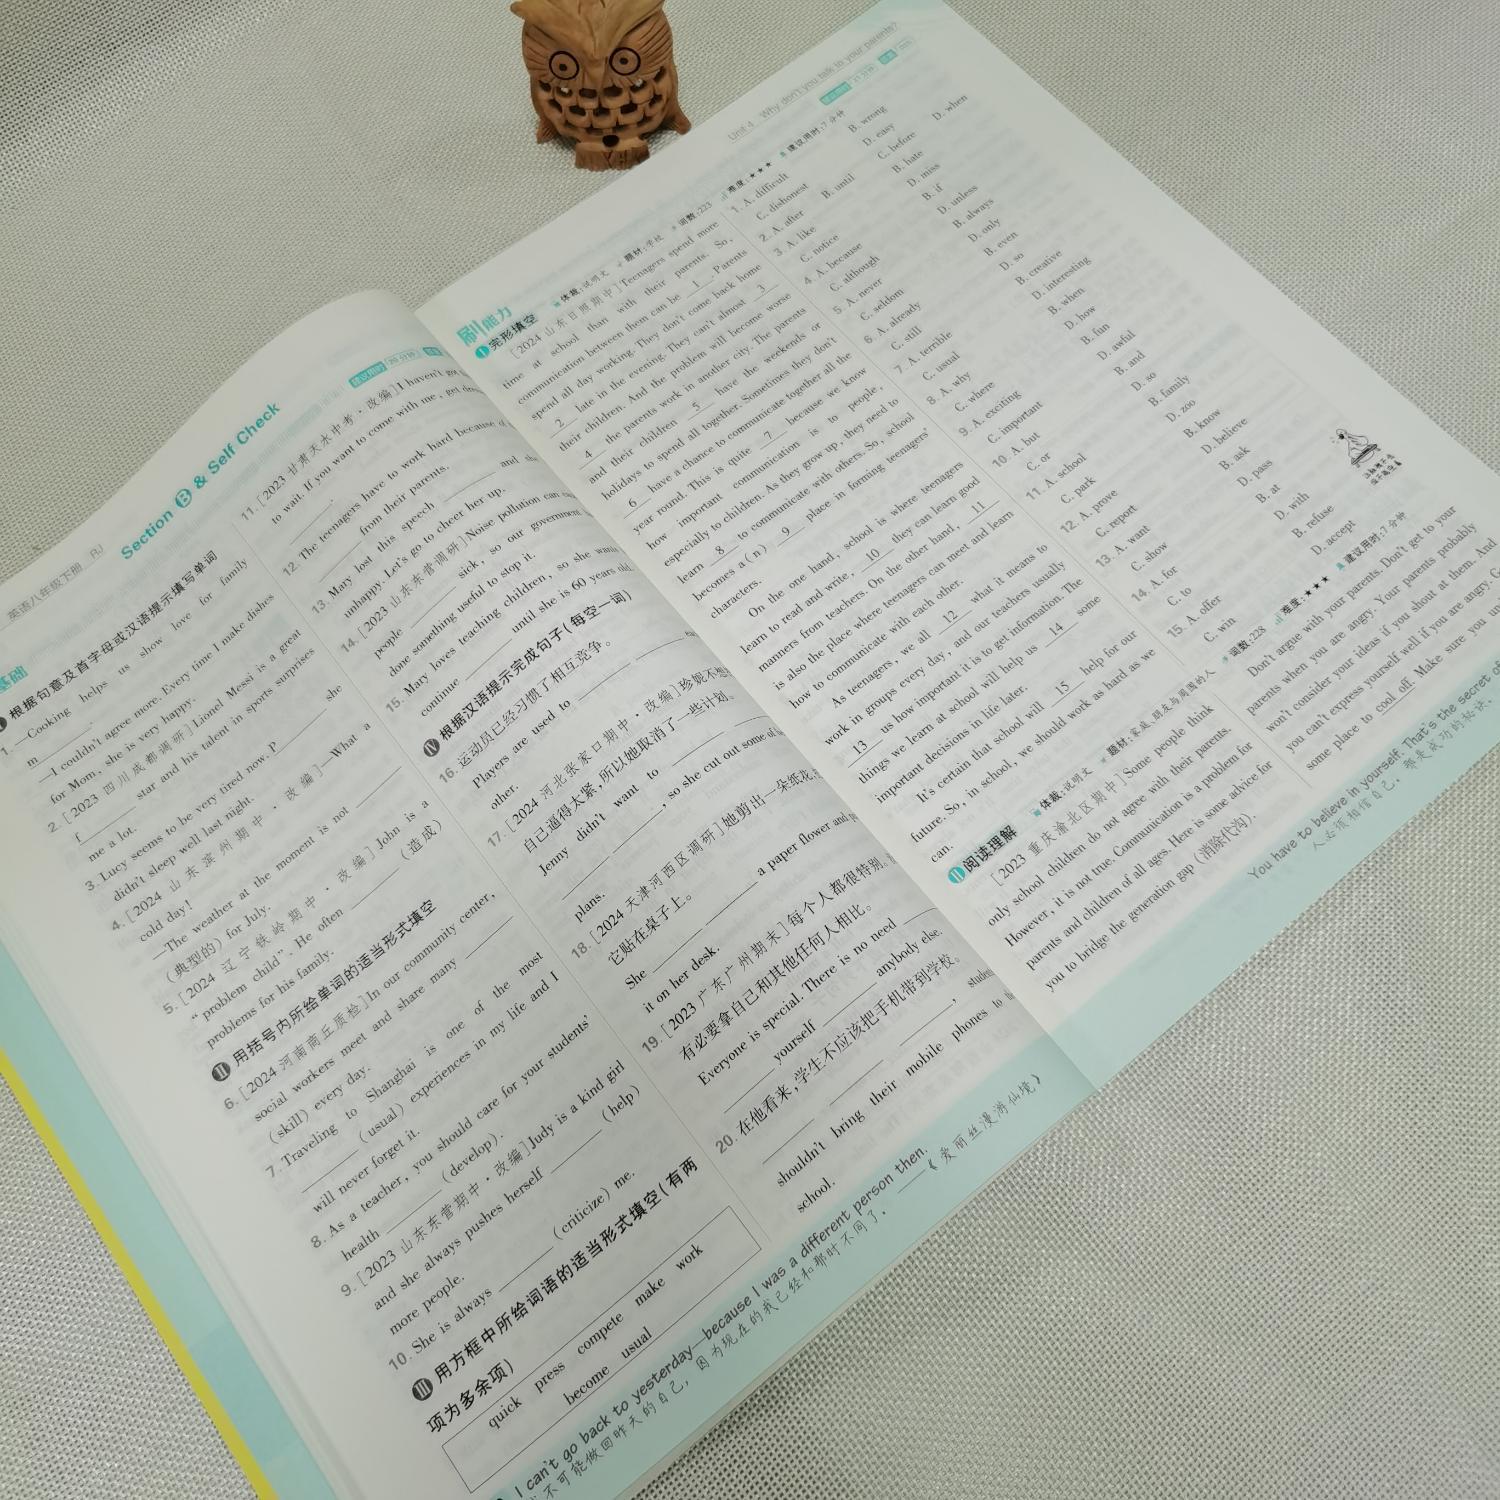 英语八年级下册 RJ
Section B & Self Check
基础
建议用时 20 分钟
Ⅰ 根据句意及首字母或汉语提示填写单词
1. —Cooking helps us show love for family
m
—I couldn't agree more. Every time I make dishes
for Mom, she is very happy.
2. [2023 四川成都调研] Lionel Messi is a great
f star and his talent in sports surprises
me a lot.
3. Lucy seems to be very tired now. P she
didn't sleep well last night.
4. [2024 山东滨州期中·改编] —What a
cold day!
—The weather at the moment is not
(典型的) for July.
5. [2024 辽宁铁岭期中·改编] John is a
“problem child”. He often (造成)
problems for his family.
Ⅱ 用括号内所给单词的适当形式填空
6. [2024 河南商丘质检] In our community center,
social workers meet and share many
(skill) every day.
7. Traveling to Shanghai is one of the most
(usual) experiences in my life and I
will never forget it.
8. As a teacher, you should care for your students'
health (develop).
9. [2023 山东东营期中·改编] Judy is a kind girl
and she always pushes herself (help)
more people.
10. She is always (criticize) me.
Ⅲ 用方框中所给词语的适当形式填空(有两
项为多余项)
quick press compete make work
become usual
11. [2023 甘肃天水中考·改编] I haven't got
to wait. If you want to come with me, get
12. The teenagers have to work hard because
from their parents.
13. Mary lost this speech and
unhappy. Let's go to cheer her up.
14. [2023 山东东营调研] Noise pollution can
people sick, so our government
done something useful to stop it.
15. Mary loves teaching children, so she
continue until she is 60 years
Ⅳ 根据汉语提示完成句子(每空一词)
16. 运动员已经习惯了相互竞争。
Players are used to
other.
17. [2024 河北张家口期中·改编] 珍妮不想
自己逼得太紧,所以她取消了一些计划。
Jenny didn't want to
, so she cut out some of
plans.
18. [2024 天津河西区调研] 她剪出一朵纸花,
它贴在桌子上。
She a paper flower and
it on her desk.
19. [2023 广东广州期末] 每个人都很特别,
有必要拿自己和其他任何人相比。
Everyone is special. There is no need
yourself anybody else.
20. 在他看来,学生不应该把手机带到学校。
,
shouldn't bring their mobile phones to
school.
I can't go back to yesterday—because I was a different person then.
不可能做回昨天的自己,因为现在的我已经和那时不同了。 ——《爱丽丝漫游仙境》
Unit 4 Why don't you talk to your parents?
刷能力
Ⅰ 完形填空
体裁:说明文 题材:学校 词数:223 难度:★★★ 建议用时:7 分钟
[2024 山东日照期中] Teenagers spend more
time at school than with their parents. So,
communication between them can be 1 . Parents
spend all day working. They don't come back home
2 late in the evening. They can't almost 3
their children. And the problem will become worse
4 the parents work in another city. The parents
and their children 5 have the weekends or
holidays to spend all together. Sometimes they don't
6 have a chance to communicate together all the
year round. This is quite 7 because we know
how important communication is to people,
especially to children. As they grow up, they need to
learn 8 to communicate with others. So, school
becomes a(n) 9 place in forming teenagers'
characters.
On the one hand, school is where teenagers
learn to read and write, 10 they can learn good
manners from teachers. On the other hand, 11
is also the place where teenagers can meet and learn
how to communicate with each other.
As teenagers, we all 12 what it means to
work in groups every day, and our teachers usually
13 us how important it is to get information. The
things we learn at school will help us 14 some
important decisions in life later.
It's certain that school will 15 help for our
future. So, in school, we should work as hard as we
can.
1. A. difficult B. wrong
C. dishonest D. easy
2. A. after B. until C. before D. when
3. A. like B. hate
C. notice D. miss
4. A. because B. if
C. although D. unless
5. A. never B. always
C. seldom D. only
6. A. already B. even
C. still D. so
7. A. terrible B. creative
C. usual D. interesting
8. A. why B. when
C. where D. how
9. A. exciting B. fun
C. important D. awful
10. A. but B. and
C. or D. so
11. A. school B. family
C. park D. zoo
12. A. prove B. know
C. report D. believe
13. A. want B. ask
C. show D. pass
14. A. for B. at
C. to D. with
15. A. offer B. refuse
C. win D. accept
Ⅱ 阅读理解
体裁:说明文 题材:家庭、朋友与周围的人 词数:228 难度:★★★ 建议用时:7 分钟
[2023 重庆渝北区期中] Some people think
only school children do not agree with their parents.
However, it is not true. Communication is a problem for
parents and children of all ages. Here is some advice for
you to bridge the generation gap (消除代沟).
Don't argue with your parents. Don't get to your
parents when you are angry. Your parents probably
won't consider your ideas if you shout at them. And
you can't express yourself well if you are angry.
some place to cool off. Make sure you
You have to believe in yourself. That's the secret of
人必须相信自己,那是成功的秘诀。